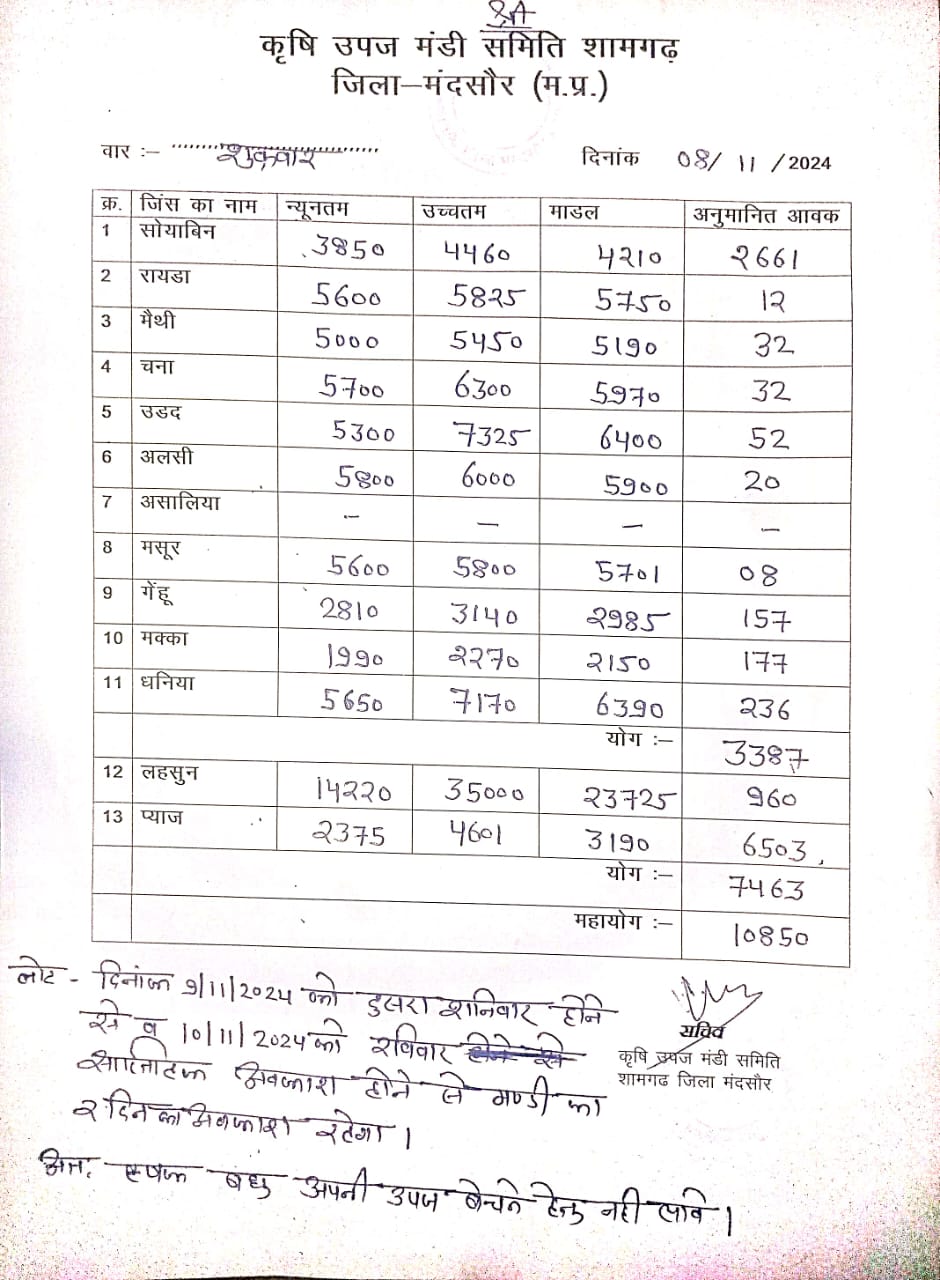 श्री
कृषि उपज मंडी समिति शामगढ़
जिला–मंदसौर (म.प्र.)
वार :– शुक्रवार दिनांक 08/ 11 /2024
क्र. जिंस का नाम न्यूनतम उच्चतम माडल अनुमानित आवक
1 सोयाबिन 3850 4460 4210 2661
2 रायडा 5600 5825 5750 12
3 मैथी 5000 5450 5190 32
4 चना 5700 6300 5970 32
5 उडद 5300 7325 6400 52
6 अलसी 5800 6000 5900 20
7 असालिया – – – –
8 मसूर 5600 5800 5701 08
9 गेंहू 2810 3140 2985 157
10 मक्का 1990 2270 2150 177
11 धनिया 5650 7170 6390 236
योग :– 3387
12 लहसुन 14220 35000 23725 960
13 प्याज 2375 4601 3190 6503
योग :– 7463
महायोग :– 10850
नोट - दिनांक 9/11/2024 को दुसरा शनिवार होने
से व 10/11/2024 को रविवार
अवकाश होने से मण्डी का
2 दिन का अवकाश रहेगा।
अत: कृषक बंधु अपनी उपज बेचने हेतु नही लावे।
सचिव
कृषि उपज मंडी समिति
शामगढ जिला मंदसौर